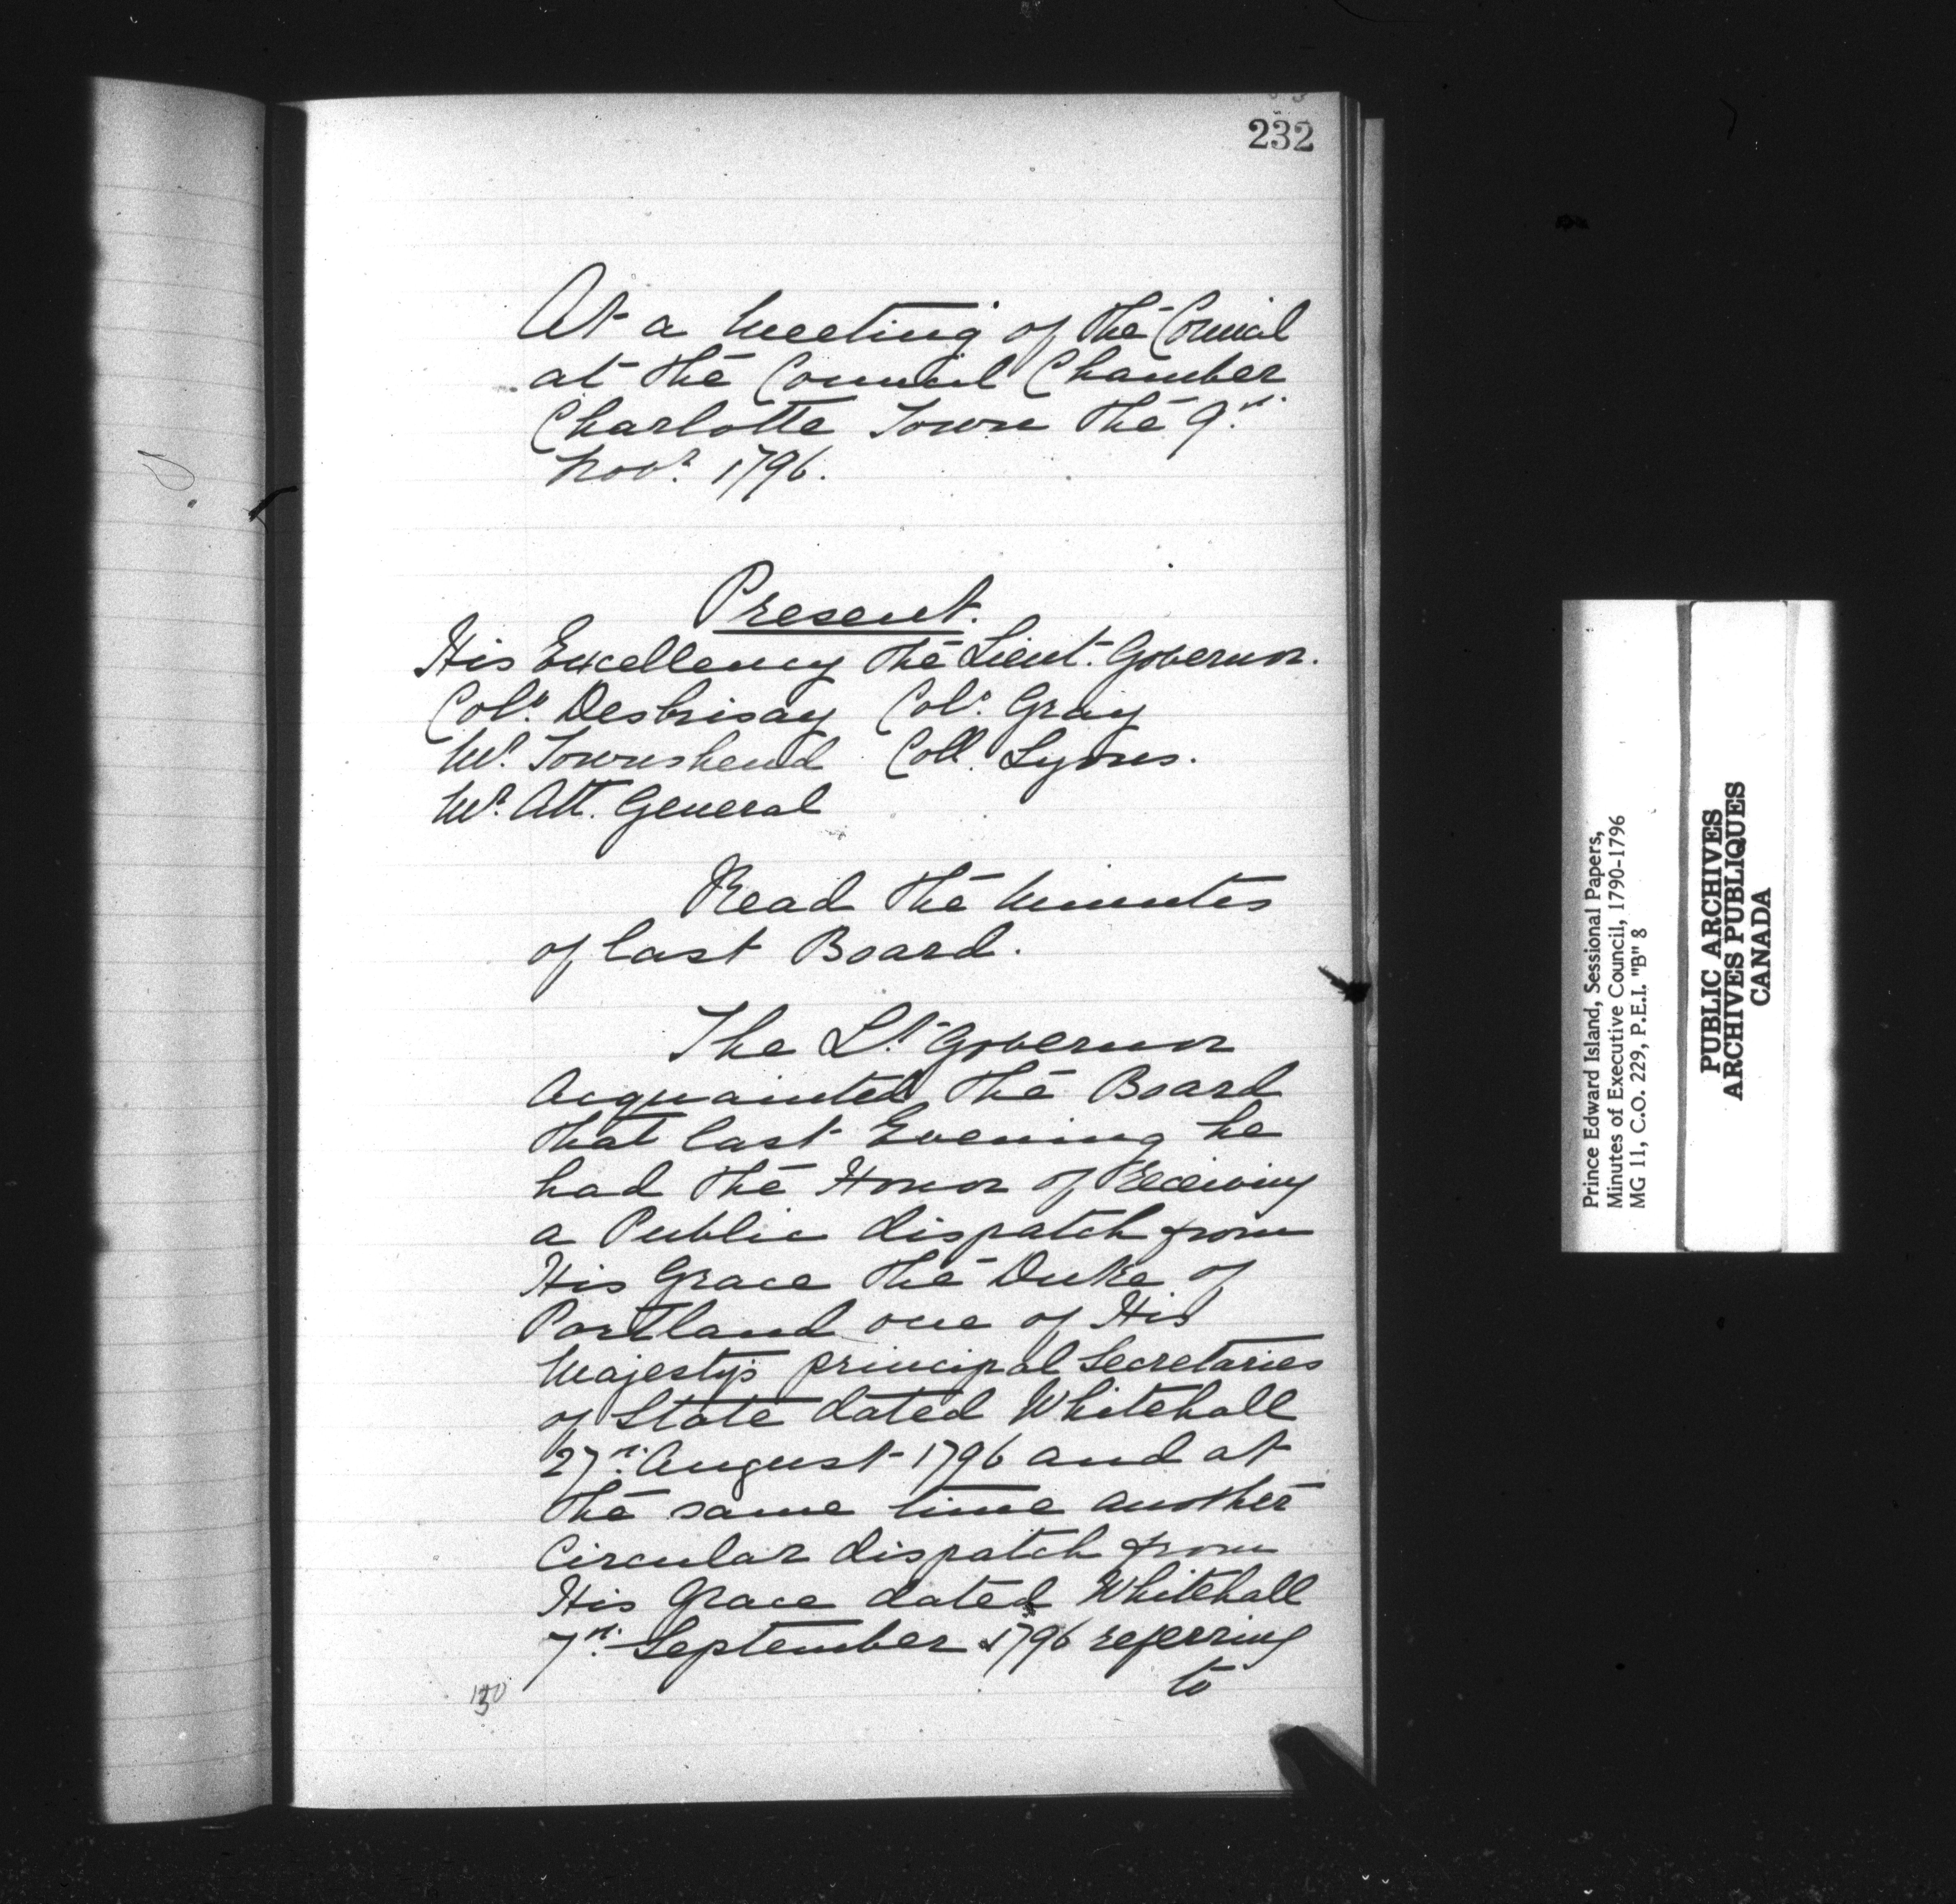 232
At a Meeting of the Council
at the Council Chamber
Charlotte Town the 9th.
Novr. 1796.
Present.
His Excellency the Lieut. Governor.
Colo. Desbrisay Colo. Gray
Mr. Townshend Coll. Lyons.
Mr. Att. General
Read the Minutes
of last Board.
The Lt. Governor
Acquainted the Board
that last Evening he
had the Honor of Receiving
a Public dispatch from
His Grace the Duke of
Portland one of His
Majesty's principal Secretaries
of State dated Whitehall
27th. August 1796 and at
the same time another
Circular dispatch from
His Grace dated Whitehall
7th. September 1796 referring
to
130
Prince Edward Island, Sessional Papers,
Minutes of Executive Council, 1790-1796
MG 11, C.O. 229, P.E.I. "B" 8
PUBLIC ARCHIVES
ARCHIVES PUBLIQUES
CANADA